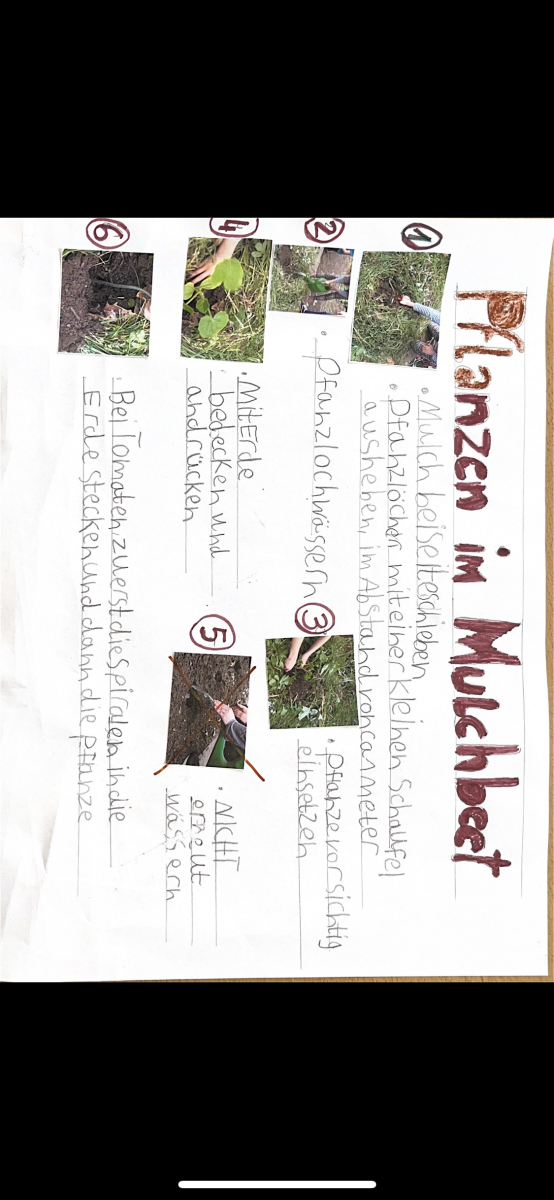 Pflanzen im Mulchbeet
①
• Mulch beiseiteschieben
• Pfanzlöcher mit einer kleinen Schaufel
ausheben, im Abstand von ca 1 meter
②
• Pfanzloch wässern
③
• Pfanze vorsichtig
einsetzen
④
• Mit Erde
bedecken und
andrücken
⑤
• NicHT
erneut
wässern
⑥
• Bei Tomaten zuerst die spiralen in die
Erde stecken und dann die Pflanze